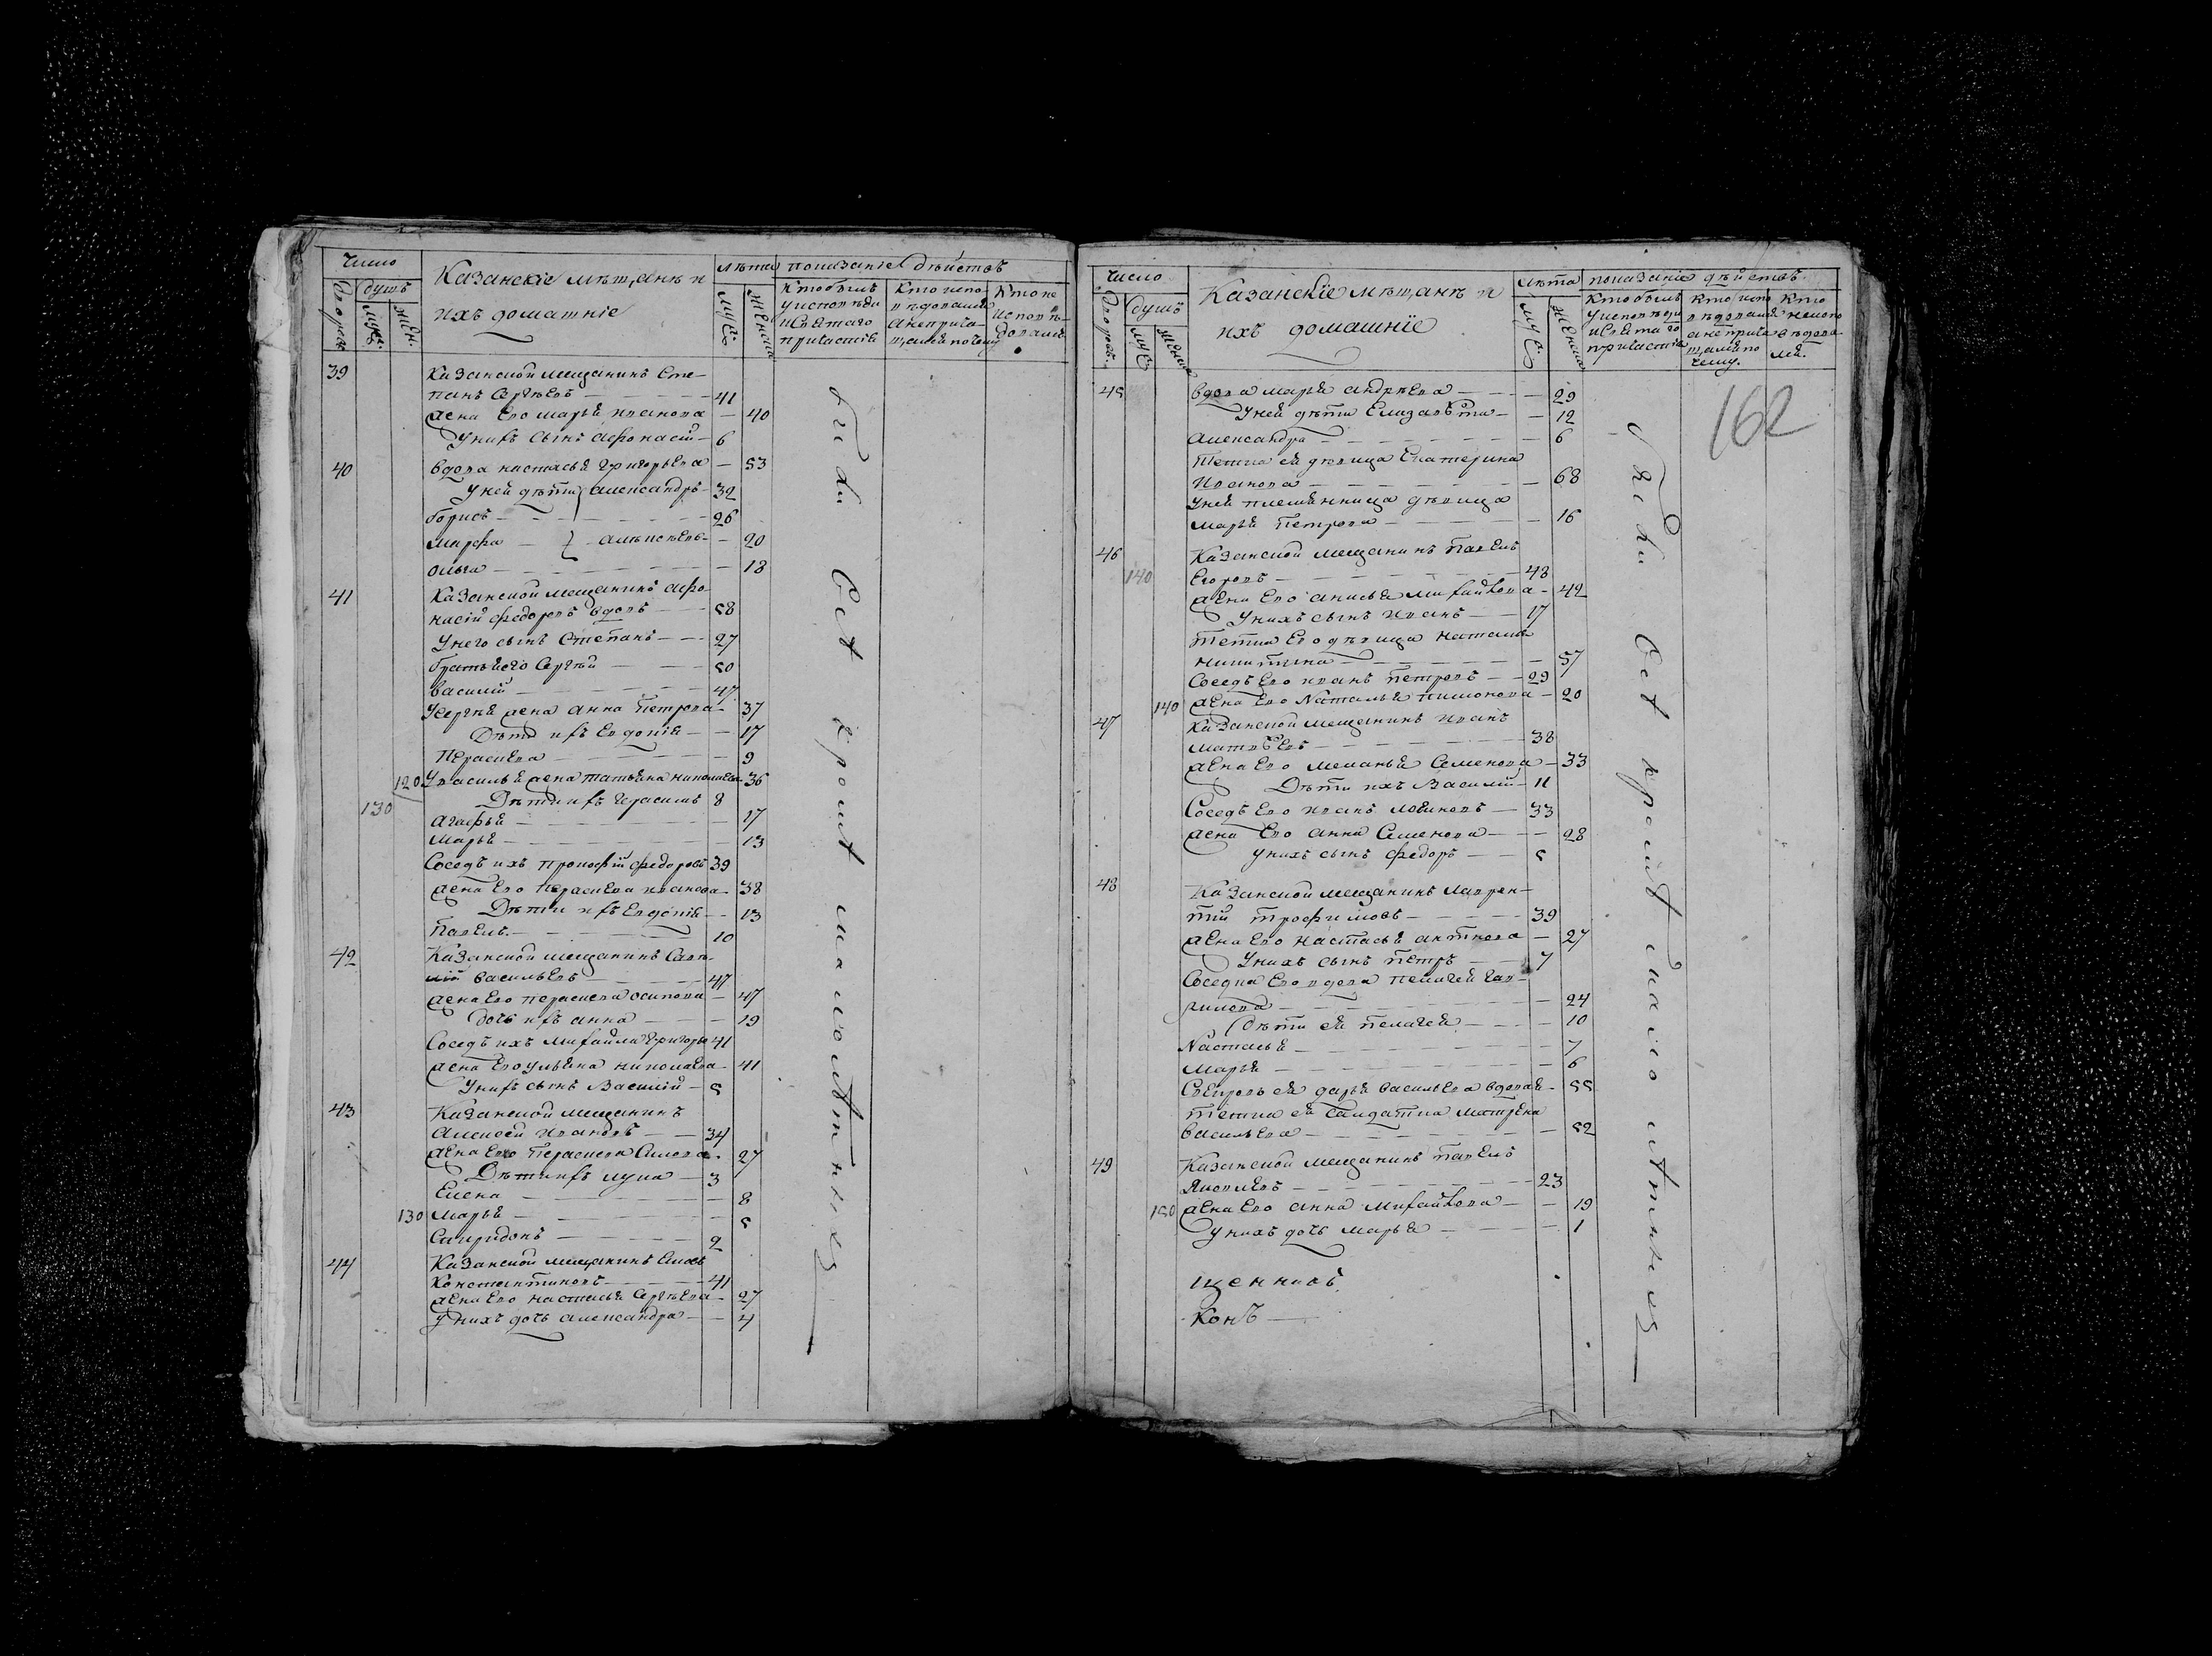 Число
Дворовъ
душъ
муж.
жен.
Казанскіе мѣщанѣ и
ихъ домашніе
лѣта
муж.
женск.
показаніе дѣйствъ
Кто былъ
у исповѣди
и Святаго
причастія
Кто испо-
вѣдовался
а не прича-
щался
Кто не
исповѣ-
довался
39 Казанской мещанинъ Сте-
панъ Сергѣевъ 41
жена Его марья иванова 40
У нихъ сынъ афонасій 6
40 Вдова настасья григорьева 53
У ней дѣти александръ 32
борисъ 26
марфа алексѣевы 20
ольга 18
41 Казанской мещанинъ афо-
насій федоровъ вдовъ 58
У него сынъ Степанъ 27
братья его Сергѣй 50
василій 47
У Сергѣя жена анна Петрова 37
Дѣти ихъ Евдокія 17
Прасковья 9
120 У василья жена татьяна николаева 36
130 Дѣти ихъ герасимъ 8
агафья 17
Марья 13
Соседъ ихъ прокофій федоровъ 39
жена Его Прасковья иванова 38
Дѣти ихъ Евдокія 13
Павелъ 10
42 Казанской мещанинъ Саве-
лій васильевъ 47
жена Его прасковья осипова 47
дочь ихъ анна 19
Соседъ ихъ Михайла григорьевъ 41
жена Его ульяна николаева 41
У нихъ сынъ Василій 5
43 Казанской мещанинъ
Алексей ивановъ 34
жена Его Прасковья 27
Дѣти ихъ лука 3
Елена 8
130 Марья 5
Спиридонъ 2
44 Казанской мещанинъ
Константиновъ 41
жена Его настасья Сергѣева 27
У нихъ дочь александра 4
были всѣ кромѣ малолѣтнихъ
Число
Дворовъ.
душъ
муж
женск
Казанскіе мѣщанѣ и
ихъ домашніе
лѣта
муж.
женска
показаніе дѣйствъ.
Кто былъ
у исповѣди
и Святаго
причастія
Кто испо
вѣдовался
а не прича
щался по
чему.
Кто
не испо
вѣдова
лся.
162
45 Вдова марья андрѣева 29
У ней дѣти Елизавѣта 12
александра 6
Тетка ей дѣвица Екатерина
Иванова 68
У ней племянница дѣвица
марья Петрова 16
46 Казанской мещанинъ Павелъ
140 Егоровъ 48
жена Его анисья михайлова 42
У нихъ сынъ иванъ 17
Тетка Его дѣвица наталья
никитина 57
Соседъ Его иванъ Петровъ 29
140 жена Его Наталья 20
47 Казанской мещанинъ иванъ
матвѣевъ 38
жена Его меланья Семенова 33
Дѣти ихъ Василій 11
Соседъ Его иванъ логиновъ 33
жена Его анна Семенова 28
У нихъ сынъ федоръ 5
48 Казанской мещанинъ лаврен-
тій трофимовъ 39
жена Его настасья антипова 27
У нихъ сынъ Петръ 7
Соседка Его вдова пелагея гав-
рилова 24
дѣти ей пелагея 10
Настасья 7
Марья 6
Свекровь ей дарья васильева вдовая 55
Тетка ей Салдатка матрена
васильева 52
49 Казанской мещанинъ Павелъ
Яковлевъ 23
150 жена Его анна михайлова 19
У нихъ дочь марья 1
щенникъ
Конъ
были всѣ кромѣ малолѣтнихъ